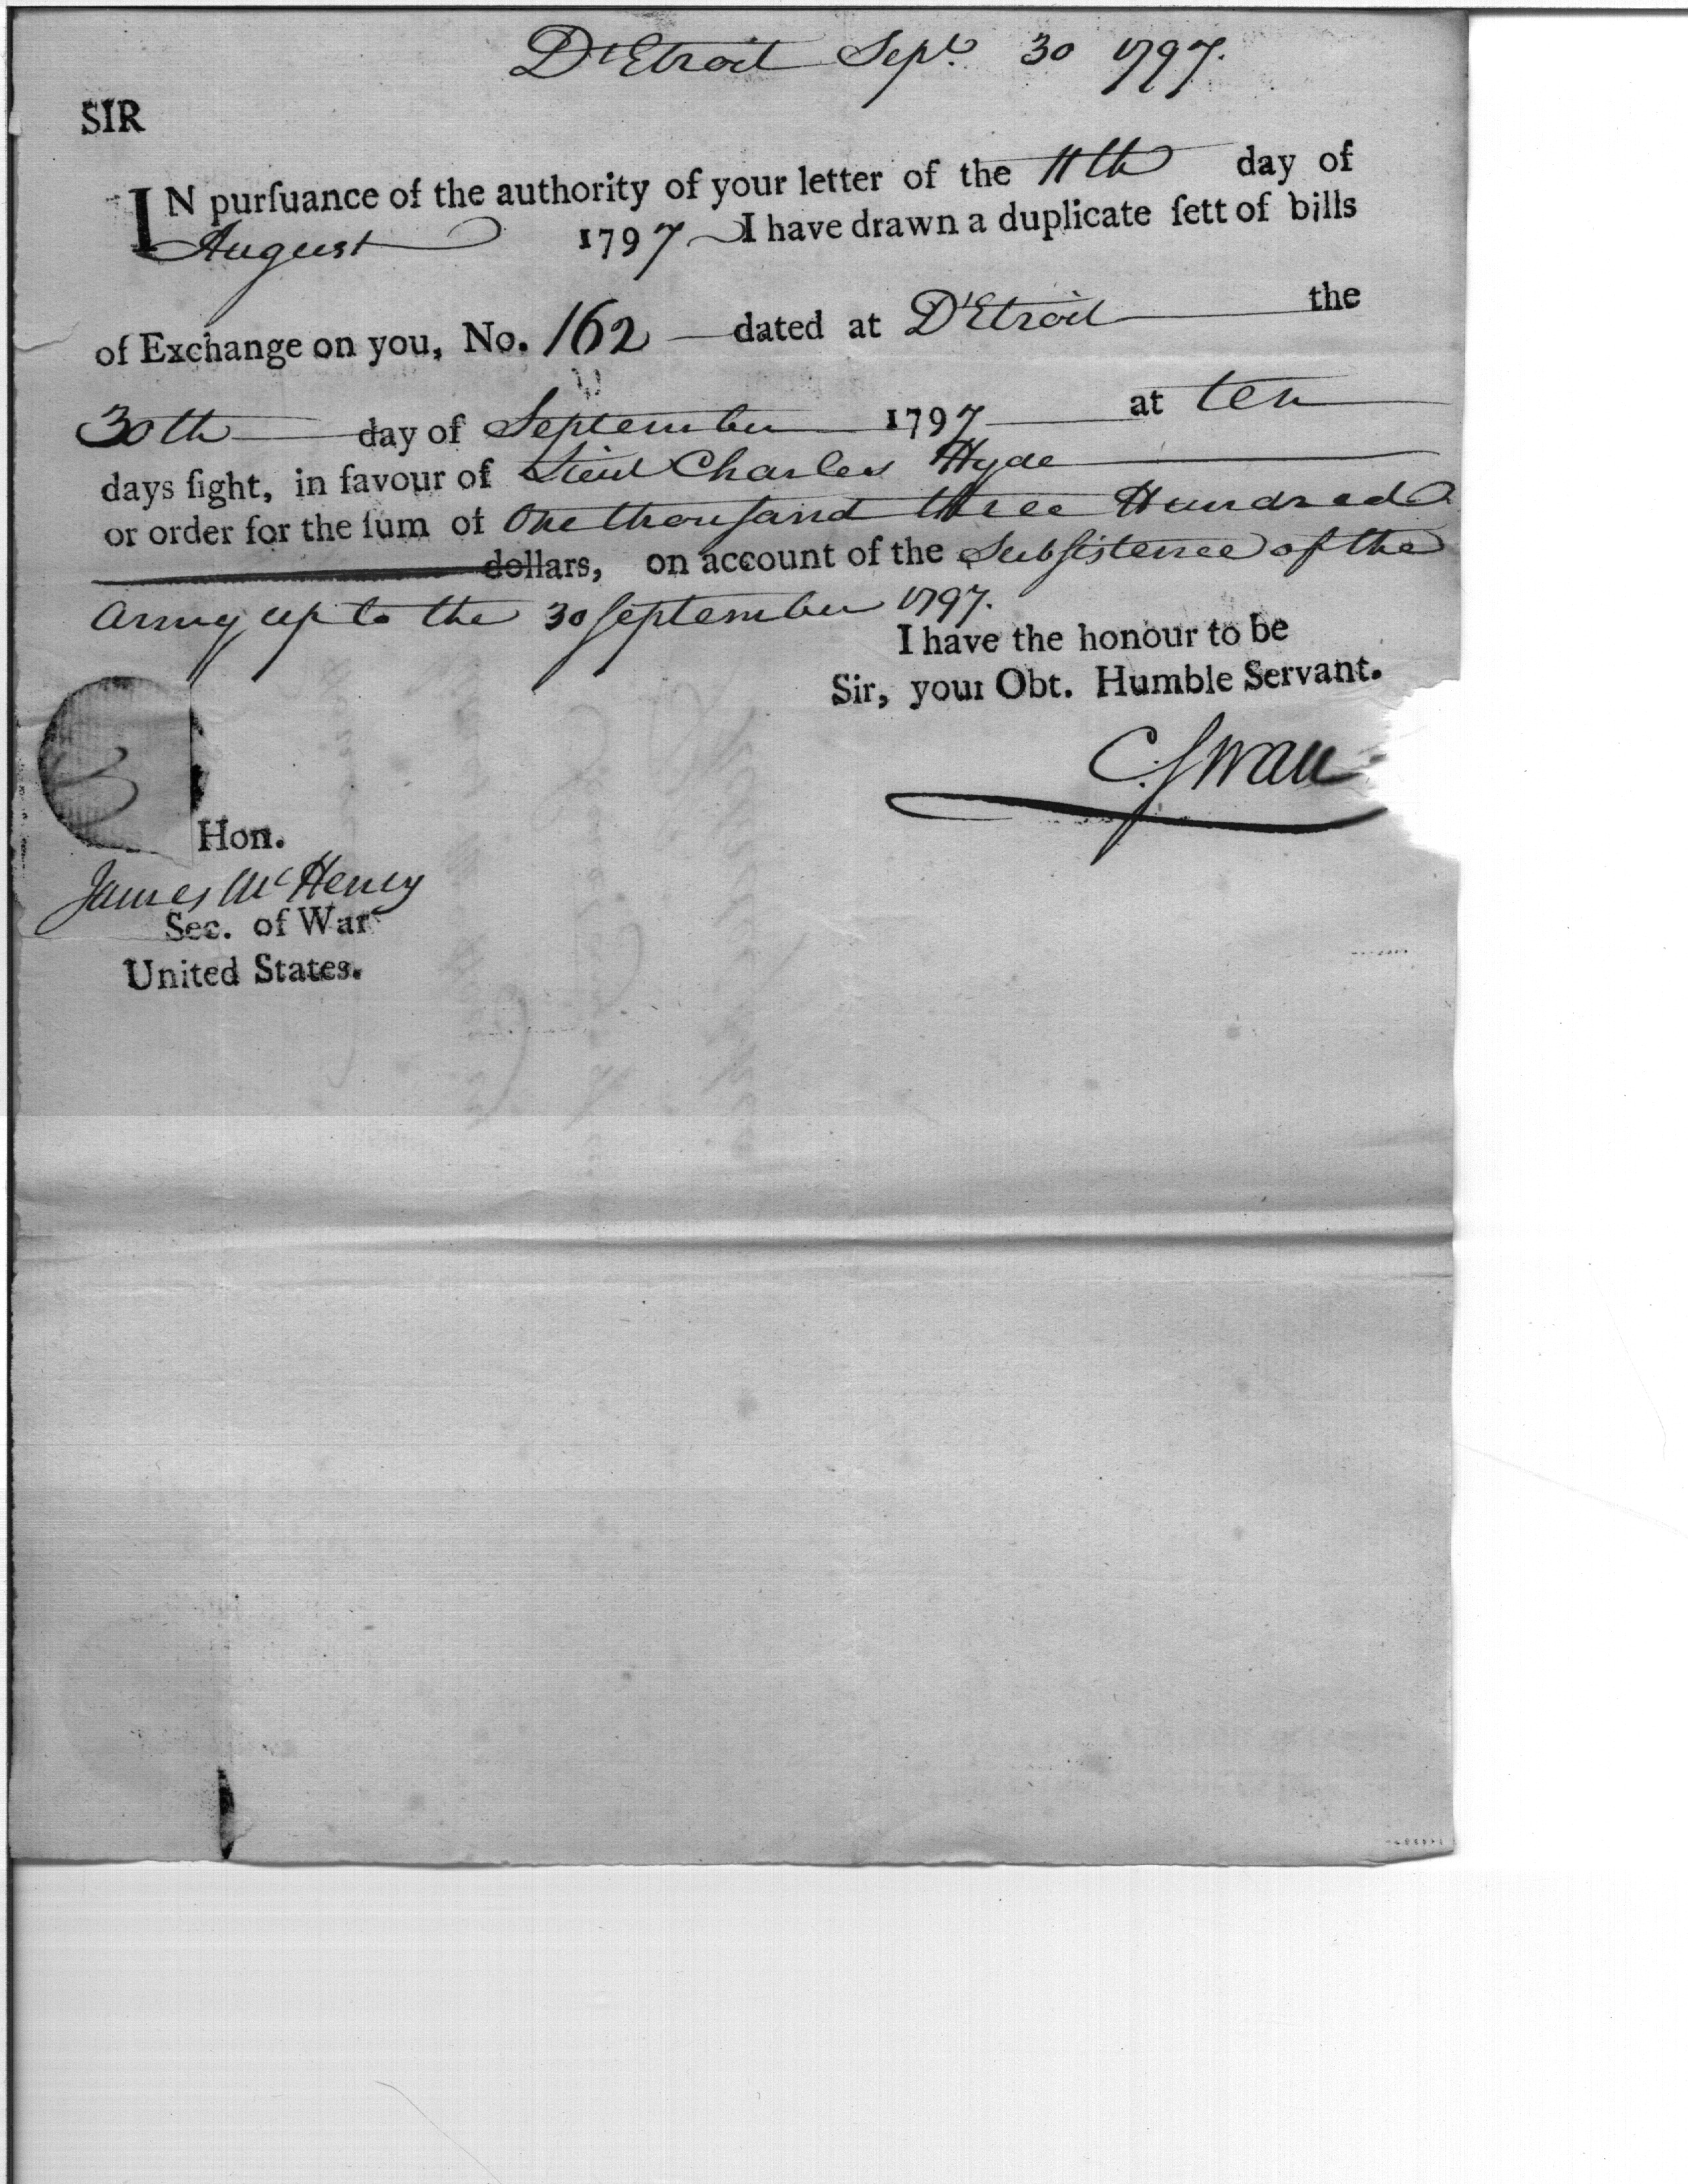 D'Etroit Sept. 30 1797.
SIR
IN purſuance of the authority of your letter of the 11th day of
August 1797 I have drawn a duplicate ſett of bills
of Exchange on you, No. 162 dated at D'Etroit the
30th day of September 1797 at ten
days ſight, in favour of Lieut Charles Hyde
or order for the ſum of One thouſand three Hundred
dollars, on account of the Subſistence of the
Army up to the 30 September 1797.
I have the honour to be
Sir, your Obt. Humble Servant.
C. Swan
Hon.
James McHenry
Sec. of War
United States.